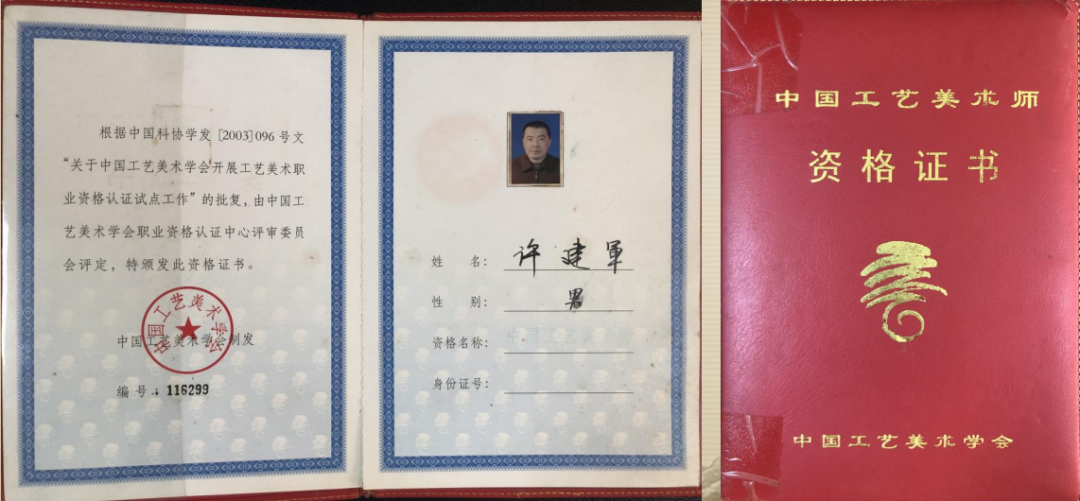 根据中国科协学发[2003]096号文
“关于中国工艺美术学会开展工艺美术职
业资格认证试点工作”的批复，由中国工
艺美术学会职业资格认证中心评审委员
会评定，特颁发此资格证书。
中国工艺美术学会
中国工艺美术学会制发
编号：116299
姓 名：许建军
性 别：男
资格名称：
身份证号：
中国工艺美术师
资格证书
中国工艺美术学会